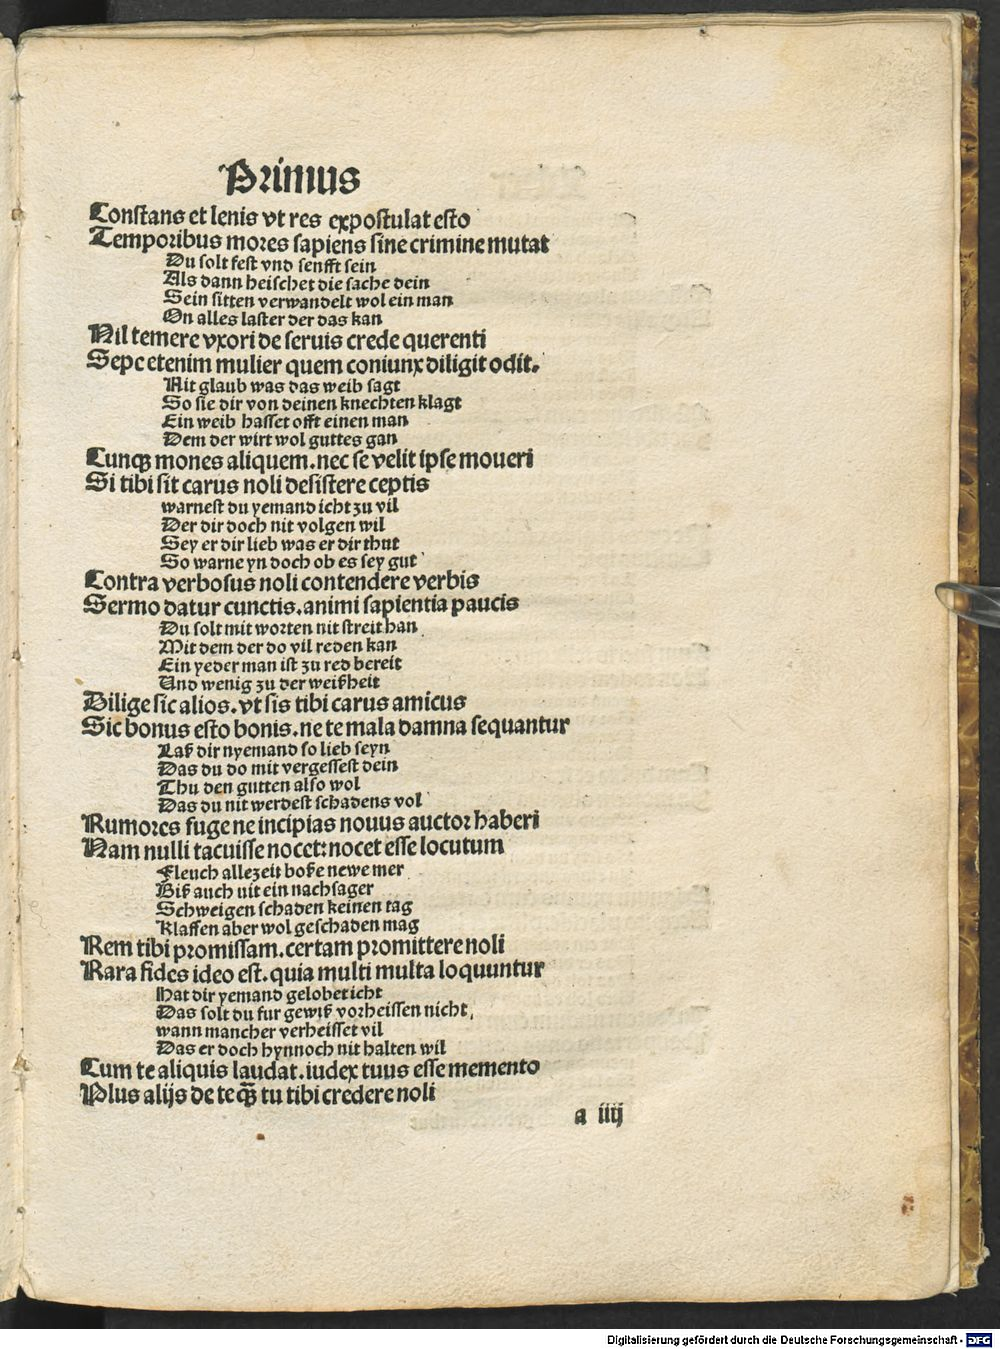 Primus
Constans et lenis vt res expostulat esto
Temporibus mores sapiens sine crimine mutat
Du solt fest vnd senfft sein
Als dann heischet die sache dein
Sein sitten verwandelt wol ein man
On alles laster der das kan
Nil temere vxori de seruis crede querenti
Sepe etenim mulier quem coniunx diligit odit.
Nit glaub was das weib sagt
So sie dir von deinen knechten klagt
Ein weib hasset offt einen man
Dem der wirt wol guttes gan
Cunqꝫ mones aliquem. nec se velit ipse moueri
Si tibi sit carus noli desistere ceptis
warnest du yemand icht zu vil
Der dir doch nit volgen wil
Sey er dir lieb was er dir thut
So warne yn doch ob es sey gut
Contra verbosus noli contendere verbis
Sermo datur cunctis. animi sapientia paucis
Du solt mit worten nit streit han
Mit dem der do vil reden kan
Ein yeder man ist zu red bereit
Und wenig zu der weißheit
Dilige sic alios. vt sis tibi carus amicus
Sic bonus esto bonis. ne te mala damna sequantur
Laß dir nyemand so lieb seyn
Das du do mit vergessest dein
Thu den gutten also wol
Das du nit werdest schadens vol
Rumores fuge ne incipias nouus auctor haberi
Nam nulli tacuisse nocet: nocet esse locutum
Fleuch allezeit boße newe mer
Biß auch nit ein nachsager
Schweigen schaden keinen tag
Klaffen aber wol geschaden mag
Rem tibi promissam. certam promittere noli
Rara fides ideo est. quia multi multa loquuntur
Hat dir yemand gelobet icht
Das solt du fur gewiß vorheissen nicht,
wann mancher verheisset vil
Das er doch hynnoch nit halten wil
Cum te aliquis laudat. iudex tuus esse memento
Plus alijs de te qꝫ̃ tu tibi credere noli
a iiij
Digitalisierung gefördert durch die Deutsche Forschungsgemeinschaft - DFG